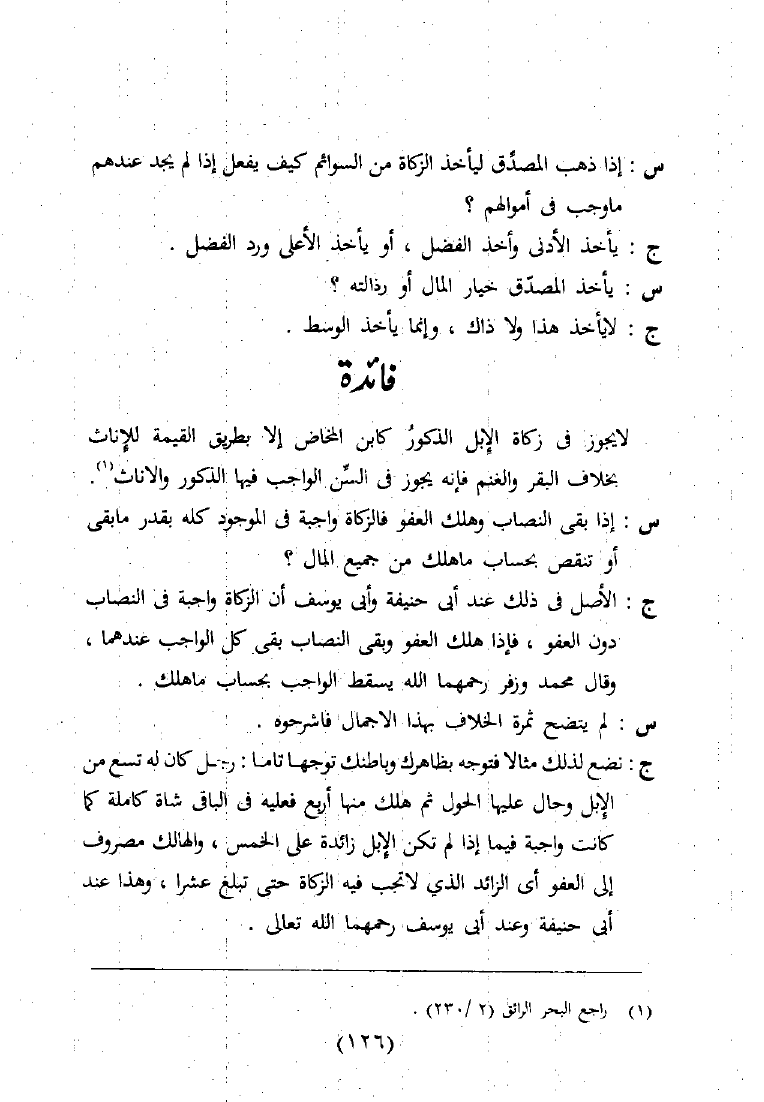 س : إذا ذهب المصدِّق ليأخذ الزكاة من السوائم كيف يفعل إذا لم يجد عندهم
ماوجب فى أموالهم ؟
ج : يأخذ الأدنى وأخذ الفضل ، أو يأخذ الأعلى ورد الفضل .
س : يأخذ المصدّق خيار المال أو رذالته ؟
ج : لايأخذ هذا ولا ذاك ، وإنما يأخذ الوسط .
فائدة
لايجوز فى زكاة الإبل الذكورُ كابن المخاض إلا بطريق القيمة للإناث
بخلاف البقر والغنم فإنه يجوز فى السِّن الواجب فيها الذكور والاناث(١).
س : إذا بقى النصاب وهلك العفو فالزكاة واجبة فى الموجود كله بقدر مابقى
أو تنقص بحساب ماهلك من جميع المال ؟
ج : الأصل فى ذلك عند أبى حنيفة وأبى يوسف أن الزكاة واجبة فى النصاب
دون العفو ، فإذا هلك العفو وبقى النصاب بقى كل الواجب عندهما ،
وقال محمد وزفر رحمهما الله يسقط الواجب بحساب ماهلك .
س : لم يتضح ثمرة الخلاف بهذا الاجمال فاشرحوه .
ج : نضع لذلك مثالا فتوجه بظاهرك وباطنك توجهـا تامـا : رجـل كان له تسع من
الإبل وحال عليها الحول ثم هلك منها أربع فعليه فى الباقى شاة كاملة كما
كانت واجبة فيما إذا لم تكن الإبل زائدة على الخمس ، والهالك مصروف
إلى العفو أى الزائد الذي لاتجب فيه الزكاة حتى تبلغ عشرا ، وهذا عند
أبى حنيفة وعند أبى يوسف رحمهما الله تعالى .
(١) راجع البحر الرائق (٢ /٢٣٠) .
(١٢٦)